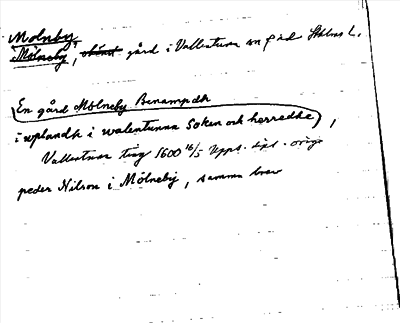 Molnby
Mölneby, gård i Vallentuna sn
En gård Mölneby Benampdh
i wplandh i walentunna Soken och herredhe,
Vallentuna ting 1600 16/5 Upps.
peder Nilson i Mölneby, samma brev